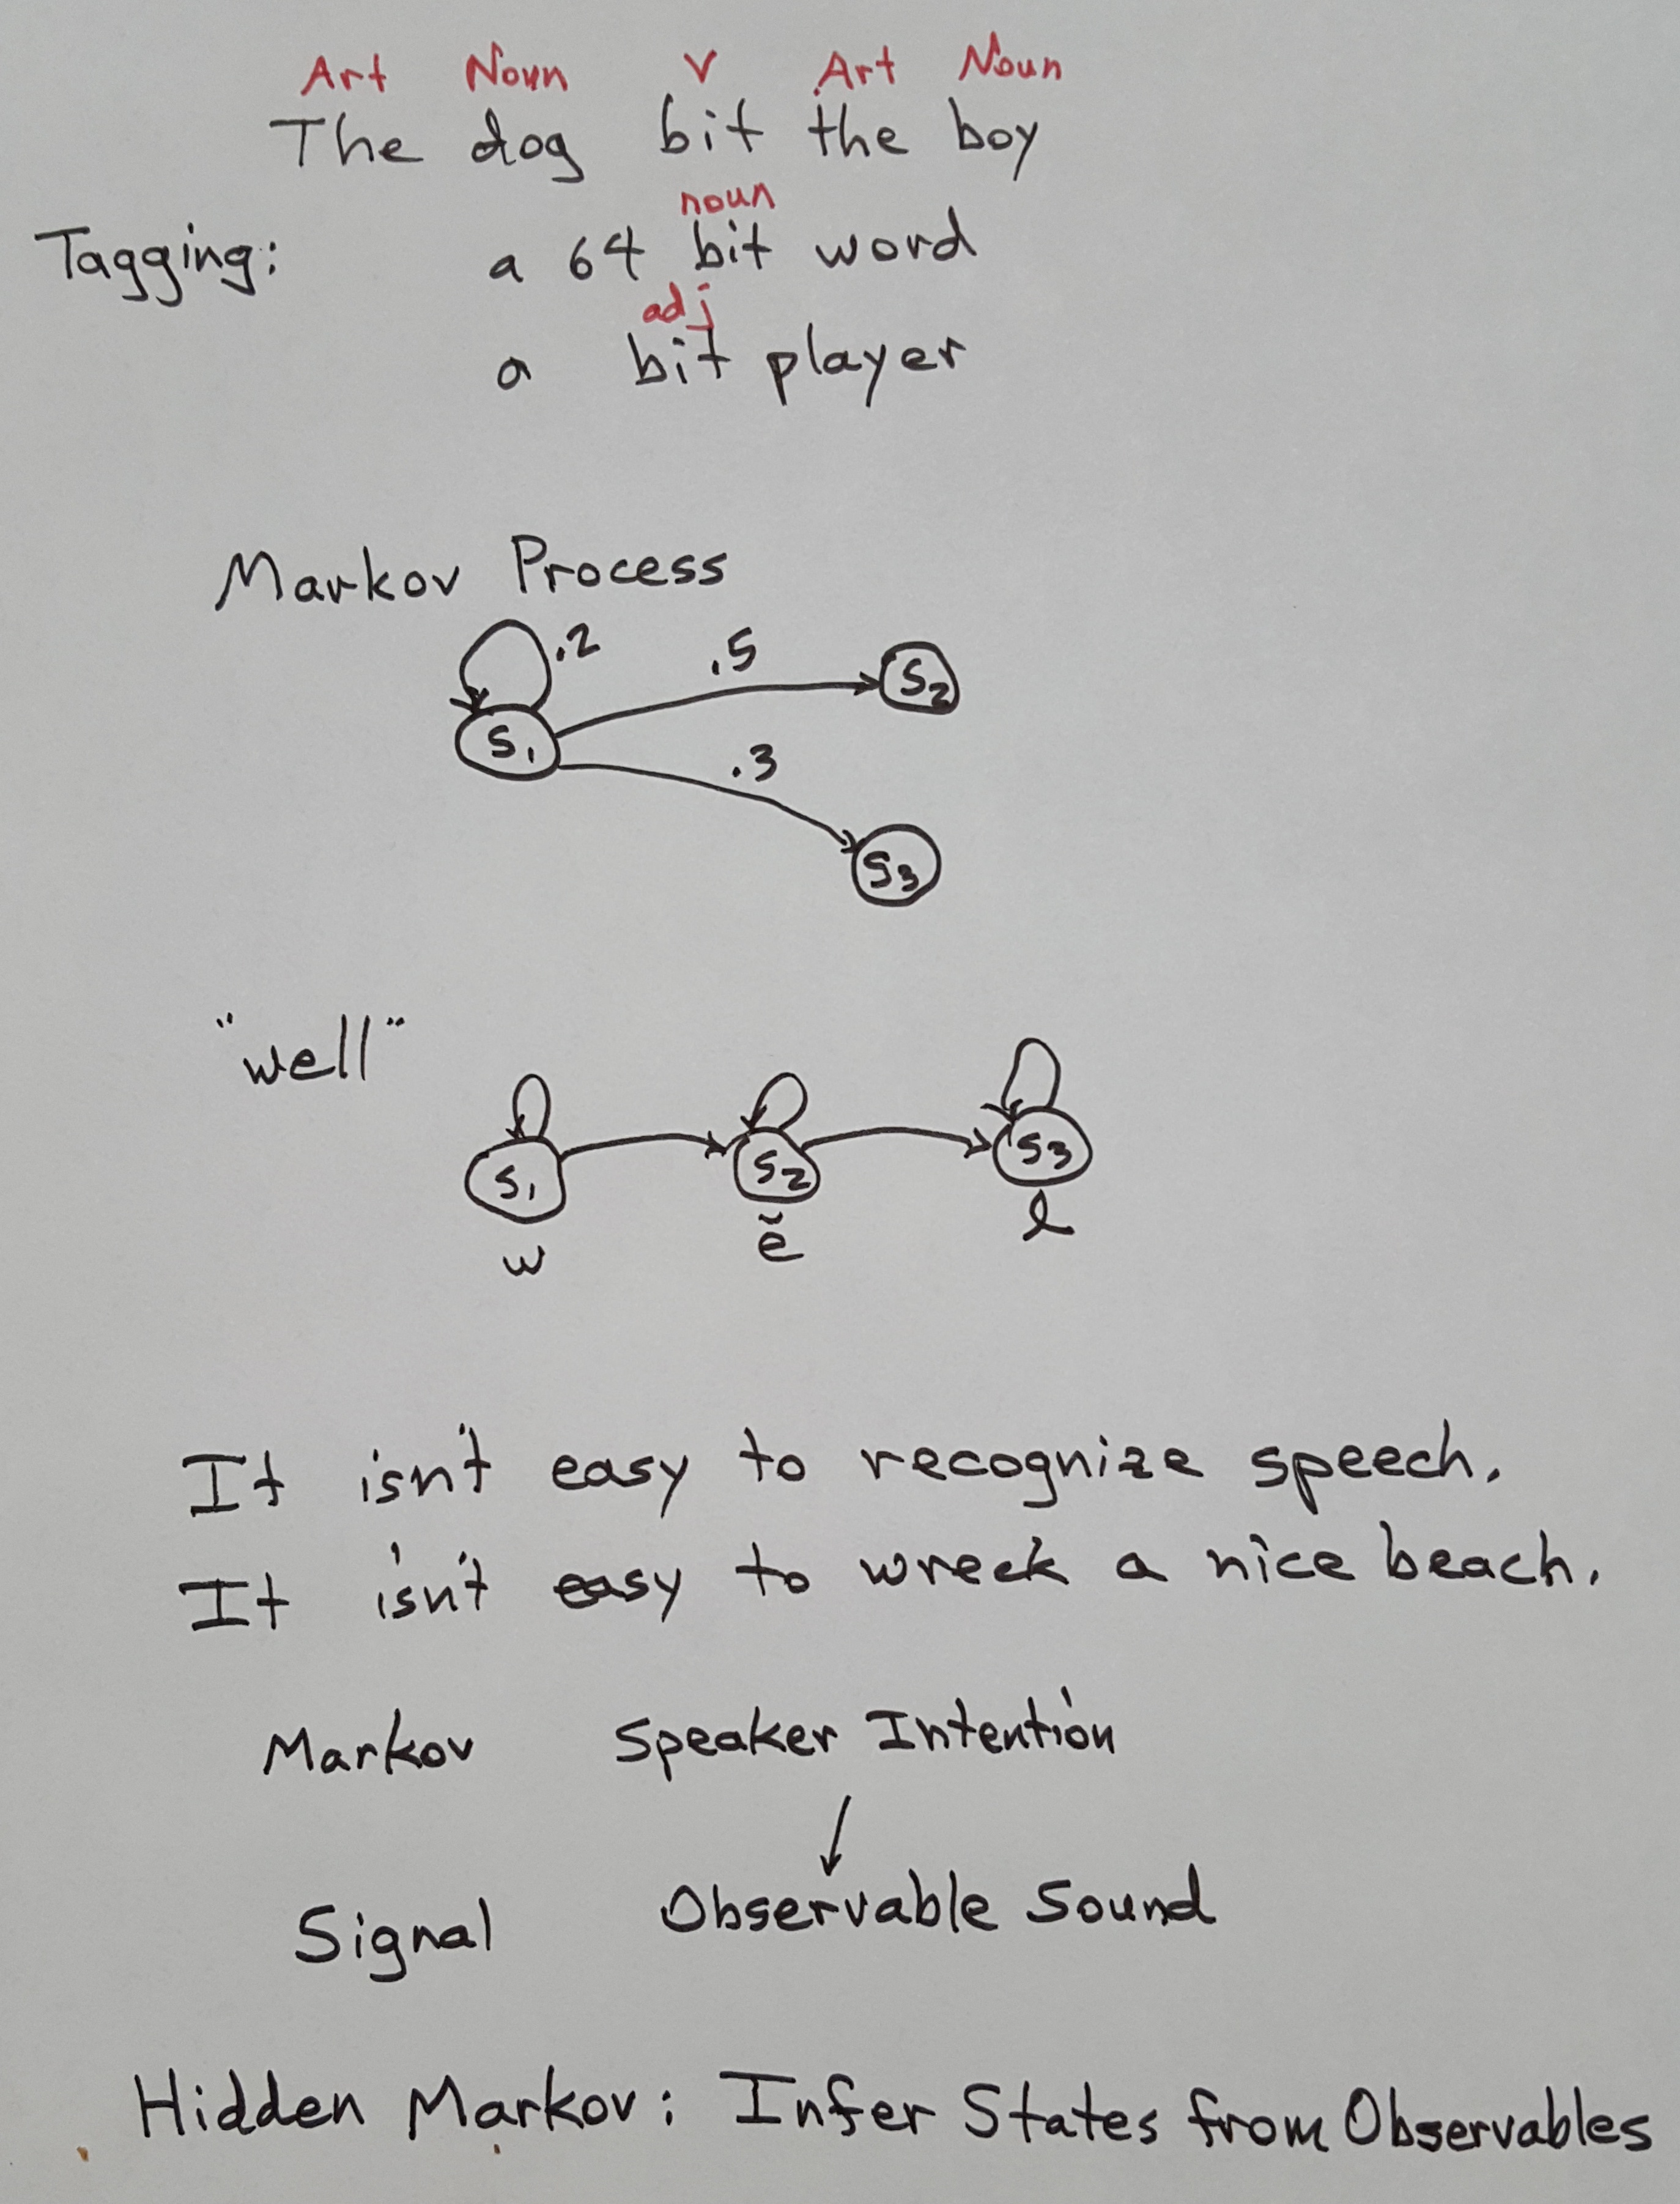 Art Noun V Art Noun
The dog bit the boy
noun
Tagging: a 64 bit word
adj
a bit player
Markov Process
.2 .5 S2
S1 .3
S3
"well"
S1 S2 S3
w ĕ l
It isn't easy to recognize speech.
It isn't easy to wreck a nice beach.
Markov Speaker Intention
Signal Observable Sound
Hidden Markov: Infer States from Observables